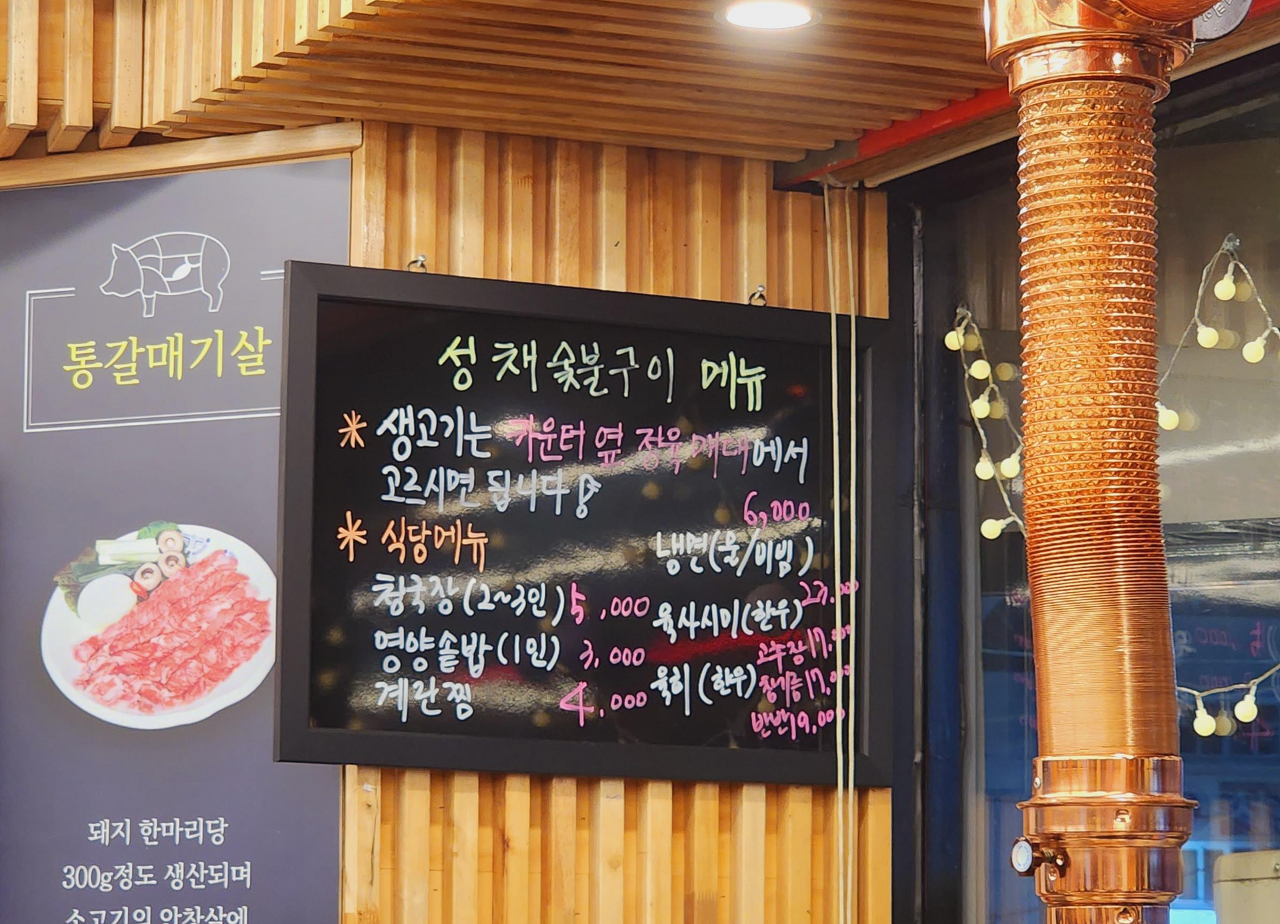 통갈매기살
돼지 한마리당
300g정도 생산되며
소고기의 안창살에
성채숯불구이 메뉴
* 생고기는 카운터 옆 정육 매대에서
고르시면 됩니다
* 식당메뉴
청국장(2~3인) 5,000
영양솥밥(1인) 3,000
계란찜 4,000
6,000
냉면(물/비빔)
육사시미(한우) 23.000
육회(한우)
고추장 17.000
참기름 17.000
반반 19.000